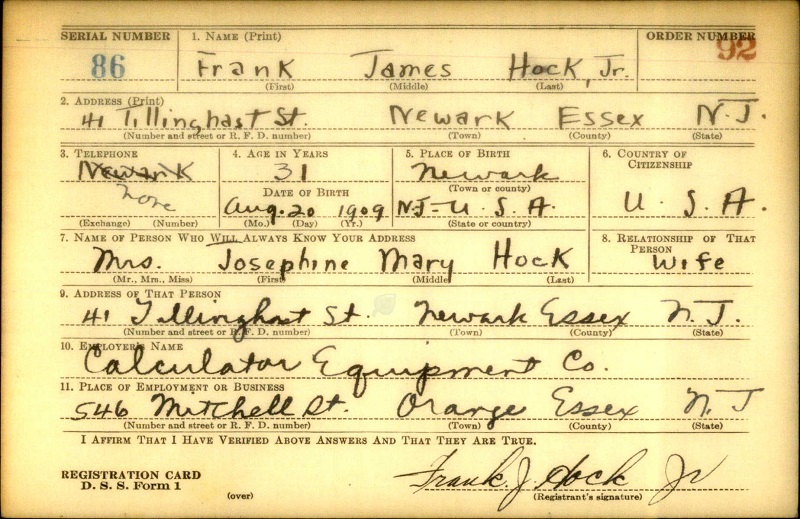 SERIAL NUMBER 1. NAME (Print) ORDER NUMBER
86 Frank James Hock, Jr. 92
(First) (Middle) (Last)
2. ADDRESS (Print)
41 Tillinghast St. Newark Essex N.J.
(Number and street or R. F. D. number) (Town) (County) (State)
3. TELEPHONE 4. AGE IN YEARS 5. PLACE OF BIRTH 6. COUNTRY OF CITIZENSHIP
Newark 31 Newark
(Town or county)
None DATE OF BIRTH U. S. A.
Aug. 20 1909 N.J.-U. S. A.
(Exchange) (Number) (Mo.) (Day) (Yr.) (State or country)
7. NAME OF PERSON WHO WILL ALWAYS KNOW YOUR ADDRESS 8. RELATIONSHIP OF THAT PERSON
Mrs. Josephine Mary Hock Wife
(Mr., Mrs., Miss) (First) (Middle) (Last)
9. ADDRESS OF THAT PERSON
41 Tillinghast St. Newark Essex N.J.
(Number and street or R. F. D. number) (Town) (County) (State)
10. EMPLOYER'S NAME
Calculator Equipment Co.
11. PLACE OF EMPLOYMENT OR BUSINESS
546 Mitchell St. Orange Essex N.J
(Number and street or R. F. D. number) (Town) (County) (State)
I AFFIRM THAT I HAVE VERIFIED ABOVE ANSWERS AND THAT THEY ARE TRUE.
REGISTRATION CARD
D. S. S. Form 1 Frank J. Hock Jr
(over) (Registrant's signature)